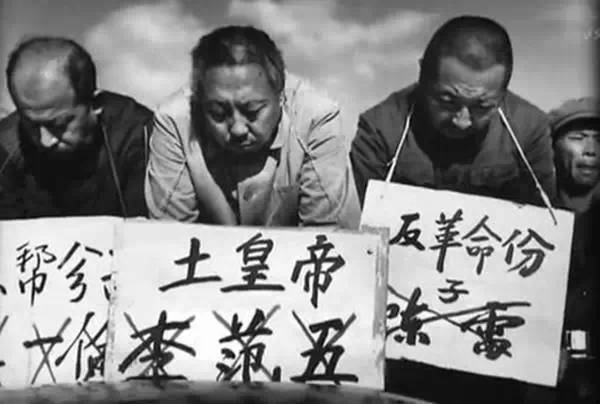 帮分
伦
土皇帝
李范五
反革命份
子
陈雷